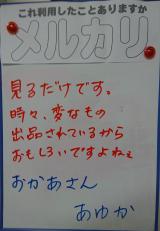 これ利用したことありますか
メルカリ
見るだけです。
時々、変なもの
出品されているから
おもしろいですよねぇ
おかあさん
あゆか